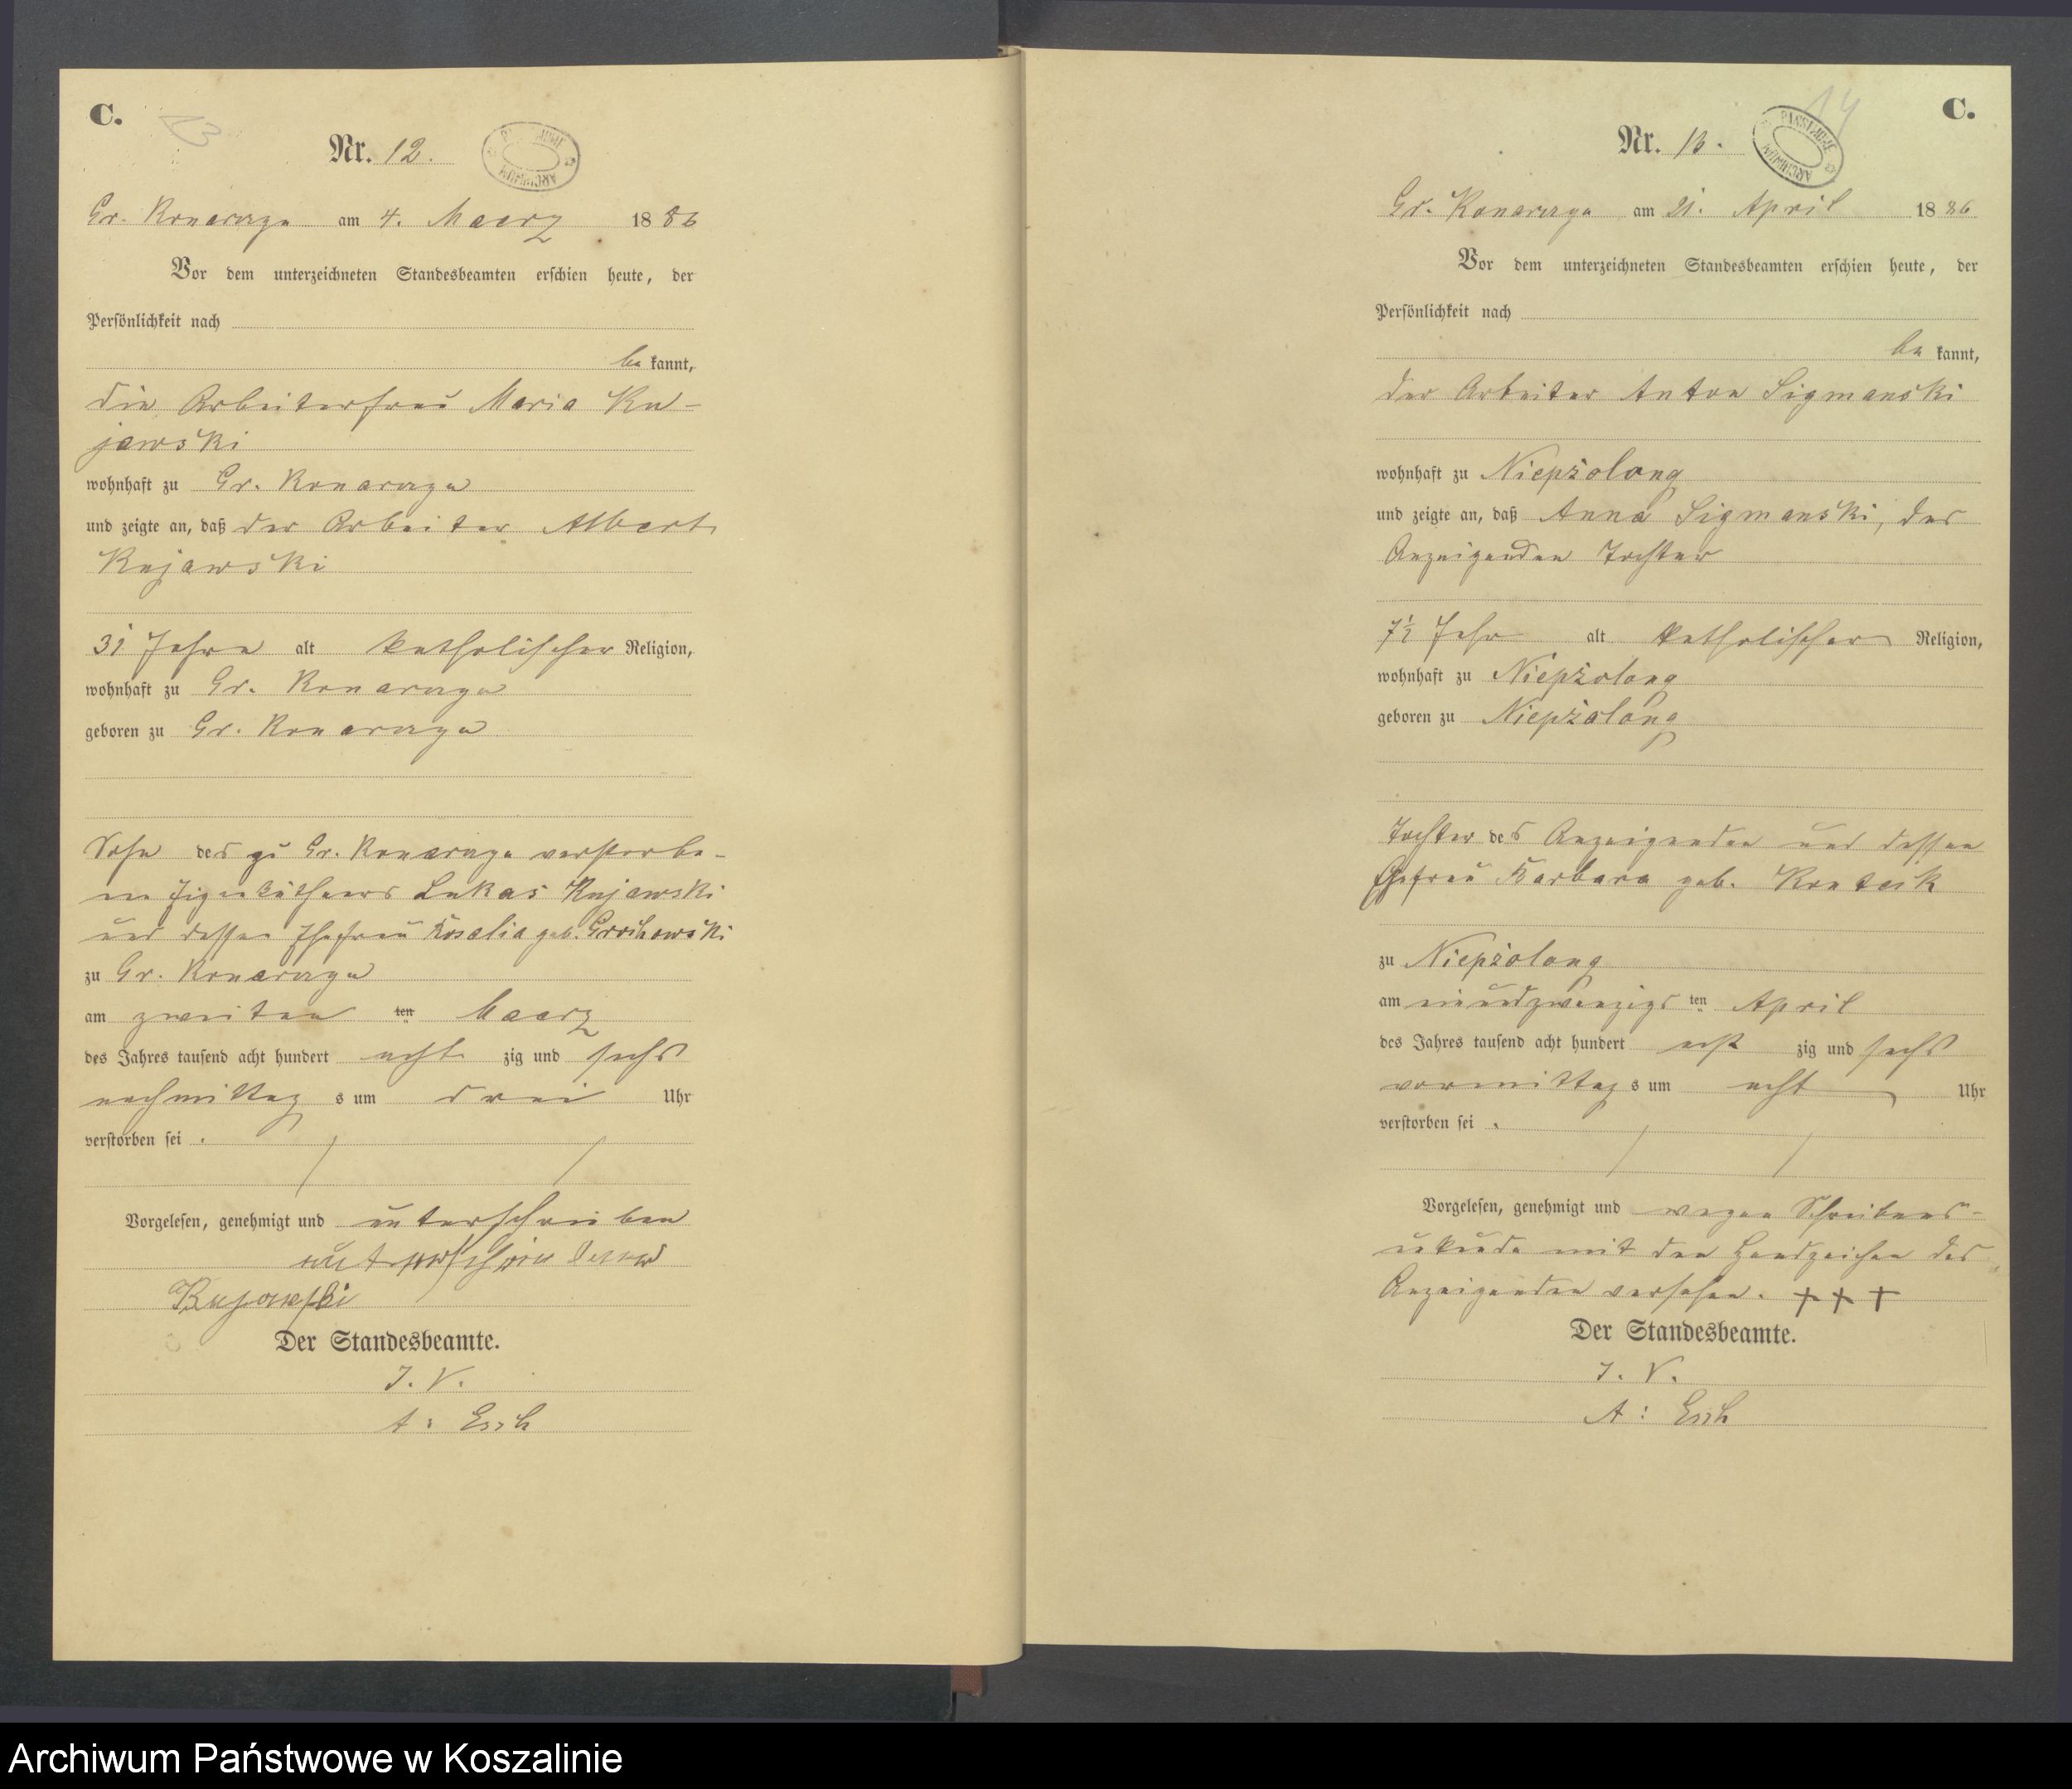 C.
13
Nr. 12.
Gr. Konarzyn am 4. Maerz 1886
Vor dem unterzeichneten Standesbeamten erschien heute, der
Persönlichkeit nach
be kannt,
die Arbeiterfrau Maria Ku-
jawski
wohnhaft zu Gr. Konarzyn
und zeigte an, daß der Arbeiter Albert
Kujawski
31 Jahre alt katholischer Religion,
wohnhaft zu Gr. Konarzyn
geboren zu Gr. Konarzyn
Sohn des zu Gr. Konarzyn verstorbe-
nen Eigenkäthners Lukas Kujawski
und dessen Ehefrau Rosalia geb. Grochowski
zu Gr. Konarzyn
am zweiten ten Maerz
des Jahres tausend acht hundert acht zig und sechs
nachmittag s um drei Uhr
verstorben sei.
Vorgelesen, genehmigt und unterschrieben
Kujowski
Der Standesbeamte.
J. V.
A: Esch
14
C.
Nr. 13.
ARCHIWUM PAŃSTWOWE
Gr. Konarzyn am 21. April 1886
Vor dem unterzeichneten Standesbeamten erschien heute, der
Persönlichkeit nach
be kannt,
der Arbeiter Anton Sigmanski
wohnhaft zu Niepżolong
und zeigte an, daß Anna Sigmanski, des
Anzeigenden Tochter
7½ Jahr alt katholischer Religion,
wohnhaft zu Niepżolong
geboren zu Niepżolong
Tochter des Anzeigenden und dessen
Ehefrau Barbara geb.
zu Niepżolong
am einundzwanzigs ten April
des Jahres tausend acht hundert acht zig und sechs
vormittag s um acht Uhr
verstorben sei.
Vorgelesen, genehmigt und wegen Schreibens-
unkunde mit den Handzeichen des
Anzeigenden versehen. + + +
Der Standesbeamte.
J. V.
A: Esch
Archiwum Państwowe w Koszalinie